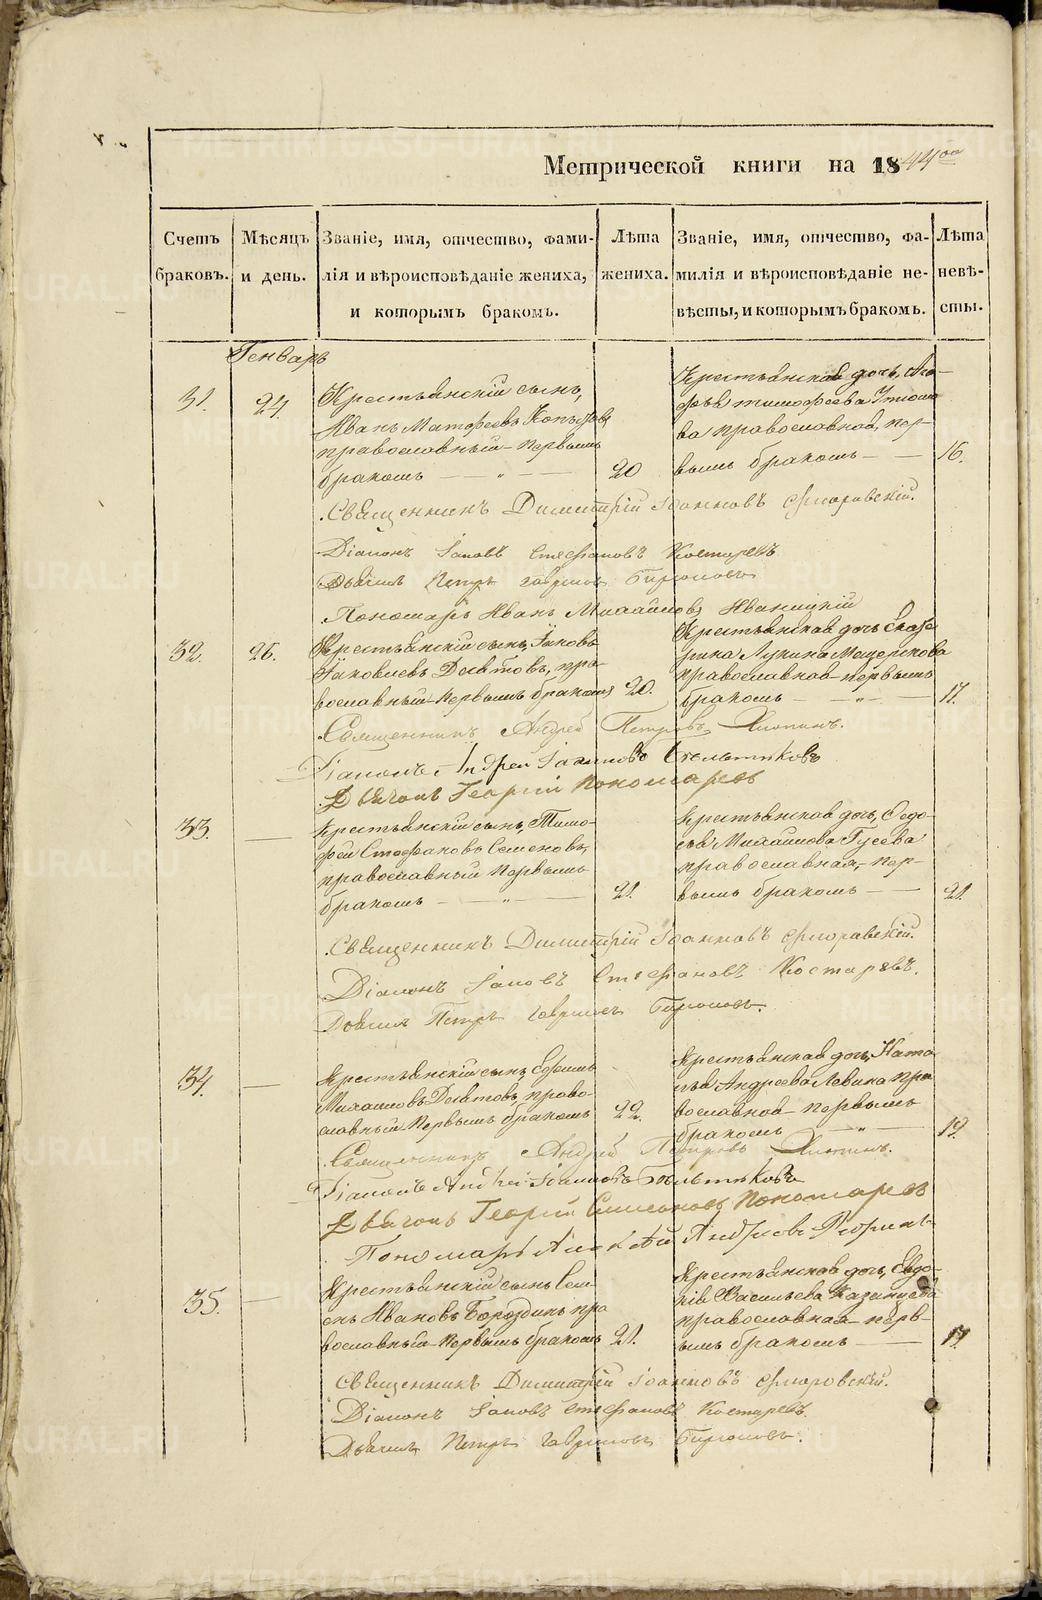 Метрической книги на 1844го
Счетъ браковъ.
Мѣсяцъ и день.
Званіе, имя, отчество, фами-
лія и вѣроисповѣданіе жениха,
и которымъ бракомъ.
Лѣта жениха.
Званіе, имя, отчество, фа-
милія и вѣроисповѣданіе не-
вѣсты, и которымъ бракомъ.
Лѣта невѣ-
сты.
Генварь
31.
24.
Крестьянскій сынъ,
Иванъ Матфеевъ
православный первымъ
бракомъ — „ —
20
Крестьянская дочь,
Тимофеева
ва православная, пер-
вымъ бракомъ — —
16.
Священникъ Димитрій Іоанновъ Флоровскій.
Діаконъ Іаковъ Стефановъ Костаревъ
Дьячекъ Петръ Гавриловъ Бирюковъ
Пономарь Иванъ Михайловъ Иваницкій
32.
26.
Крестьянскій сынъ, Іаковъ
Іаковлевъ Девятовъ, пра-
вославный первымъ бракомъ
20.
Крестьянская дочь Екате-
рина Лукина Мащерякова
православная первымъ
бракомъ — „ —
17.
Священникъ Андрей Петровъ Хлопинъ.
Діаконъ Андрей Іакимовъ Стельниковъ
Дьячокъ Георгій Пономаревъ
33.
—
Крестьянскій сынъ, Тимо-
фей Стефановъ Семеновъ,
православный первымъ
бракомъ — „ —
21.
Крестьянская дочь, Федо-
сья Михайлова Гусева
православная, пер-
вымъ бракомъ — —
21.
Священникъ Димитрій Іоанновъ Флоровскій.
Діаконъ Іаковъ Стефановъ Костаревъ.
Дьячекъ Петръ Гавриловъ Бирюковъ.
34.
—
Крестьянскій сынъ, Ефимъ
Михайловъ Девятовъ, право-
славный первымъ бракомъ
22.
Крестьянская дочь, Ната-
лья Андреева Левина пра-
вославная первымъ
бракомъ — „ —
19.
Священникъ Андрей Петровъ Хлопинъ.
Діаконъ Андрей Іакимовъ Стельниковъ
Дьячокъ Георгій Симеоновъ Пономаревъ
Пономарь Алексѣй Андреевъ
35.
—
Крестьянскій сынъ Сем-
енъ Ивановъ Бороздинъ пра-
вославный первымъ бракомъ
21.
Крестьянская дочь, Евдо-
кія Васильева Казанцева
православная перв-
ымъ бракомъ —
17.
Священникъ Димитрій Іоанновъ Флоровскій.
Діаконъ Іаковъ Стефановъ Костаревъ.
Дьячекъ Петръ Гавриловъ Бирюковъ.
METRIKI.GASU-URAL.RU